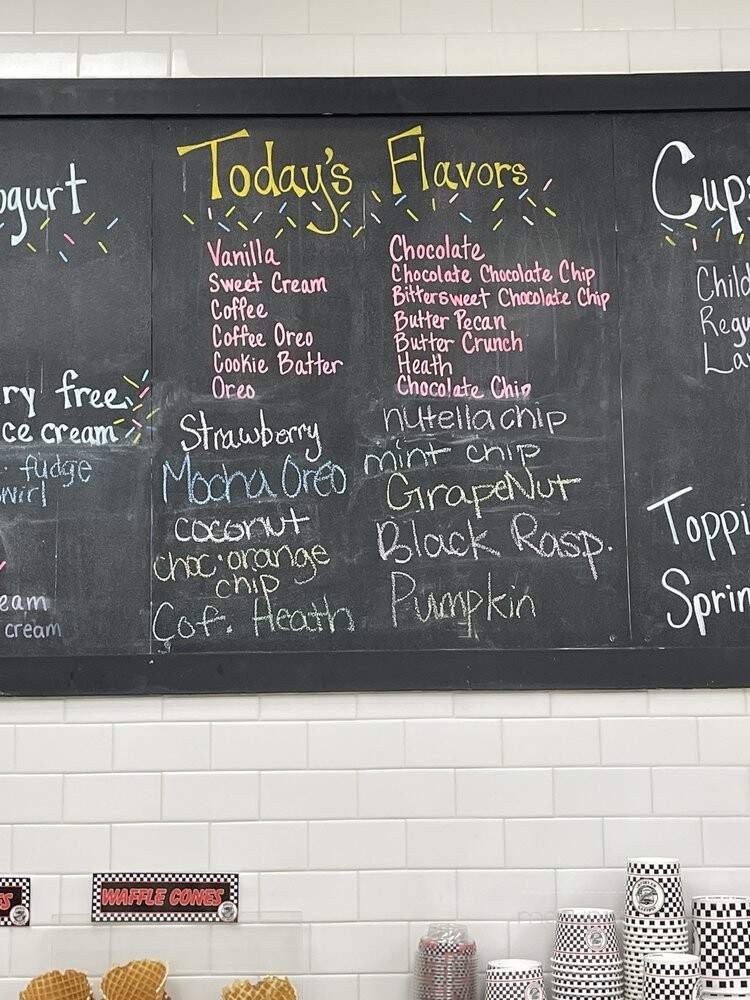 Today's Flavors
Vanilla
Sweet Cream
Coffee
Coffee Oreo
Cookie Batter
Oreo
Strawberry
Mocha Oreo
coconut
choc. orange
chip
Cof. Heath
Chocolate
Chocolate Chocolate Chip
Bittersweet Chocolate Chip
Butter Pecan
Butter Crunch
Heath
Chocolate Chip
nutella chip
mint chip
GrapeNut
Black Rasp.
Pumpkin
ogurt
ry free
ce cream
fudge
wirl
eam
cream
Cups
Child
Regu
La
Toppi
Sprin
WAFFLE CONES
ES